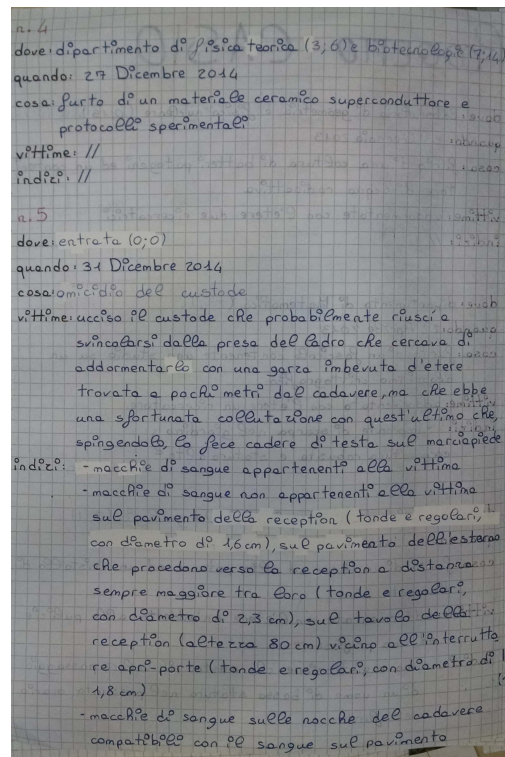 n. 4
dove: dipartimento di fisica teorica (3; 6) e biotecnologie (7; 14)
quando: 27 Dicembre 2014
cosa: furto di un materiale ceramico superconduttore e
protocolli sperimentali
vittime: //
indizi: //
n. 5
dove: entrata (0; 0)
quando: 31 Dicembre 2014
cosa: omicidio del custode
vittime: ucciso il custode che probabilmente riuscì a
svincolarsi dalla presa del ladro che cercava di
addormentarlo con una garza imbevuta d'etere
trovata a pochi metri dal cadavere, ma che ebbe
una sfortunata collutazione con quest'ultimo che,
spingendolo, lo fece cadere di testa sul marciapiede
indizi: - macchie di sangue appartenenti alla vittima
- macchie di sangue non appartenenti alla vittima
sul pavimento della reception (tonde e regolari,
con diametro di 1,6 cm), sul pavimento dell'esterno
che procedono verso la reception a distanza
sempre maggiore tra loro (tonde e regolari,
con diametro di 2,3 cm), sul tavolo della
reception (altezza 80 cm) vicino all'interrutto
re apri-porte (tonde e regolari, con diametro di
1,8 cm)
- macchie di sangue sulle nocche del cadavere
compatibili con il sangue sul pavimento